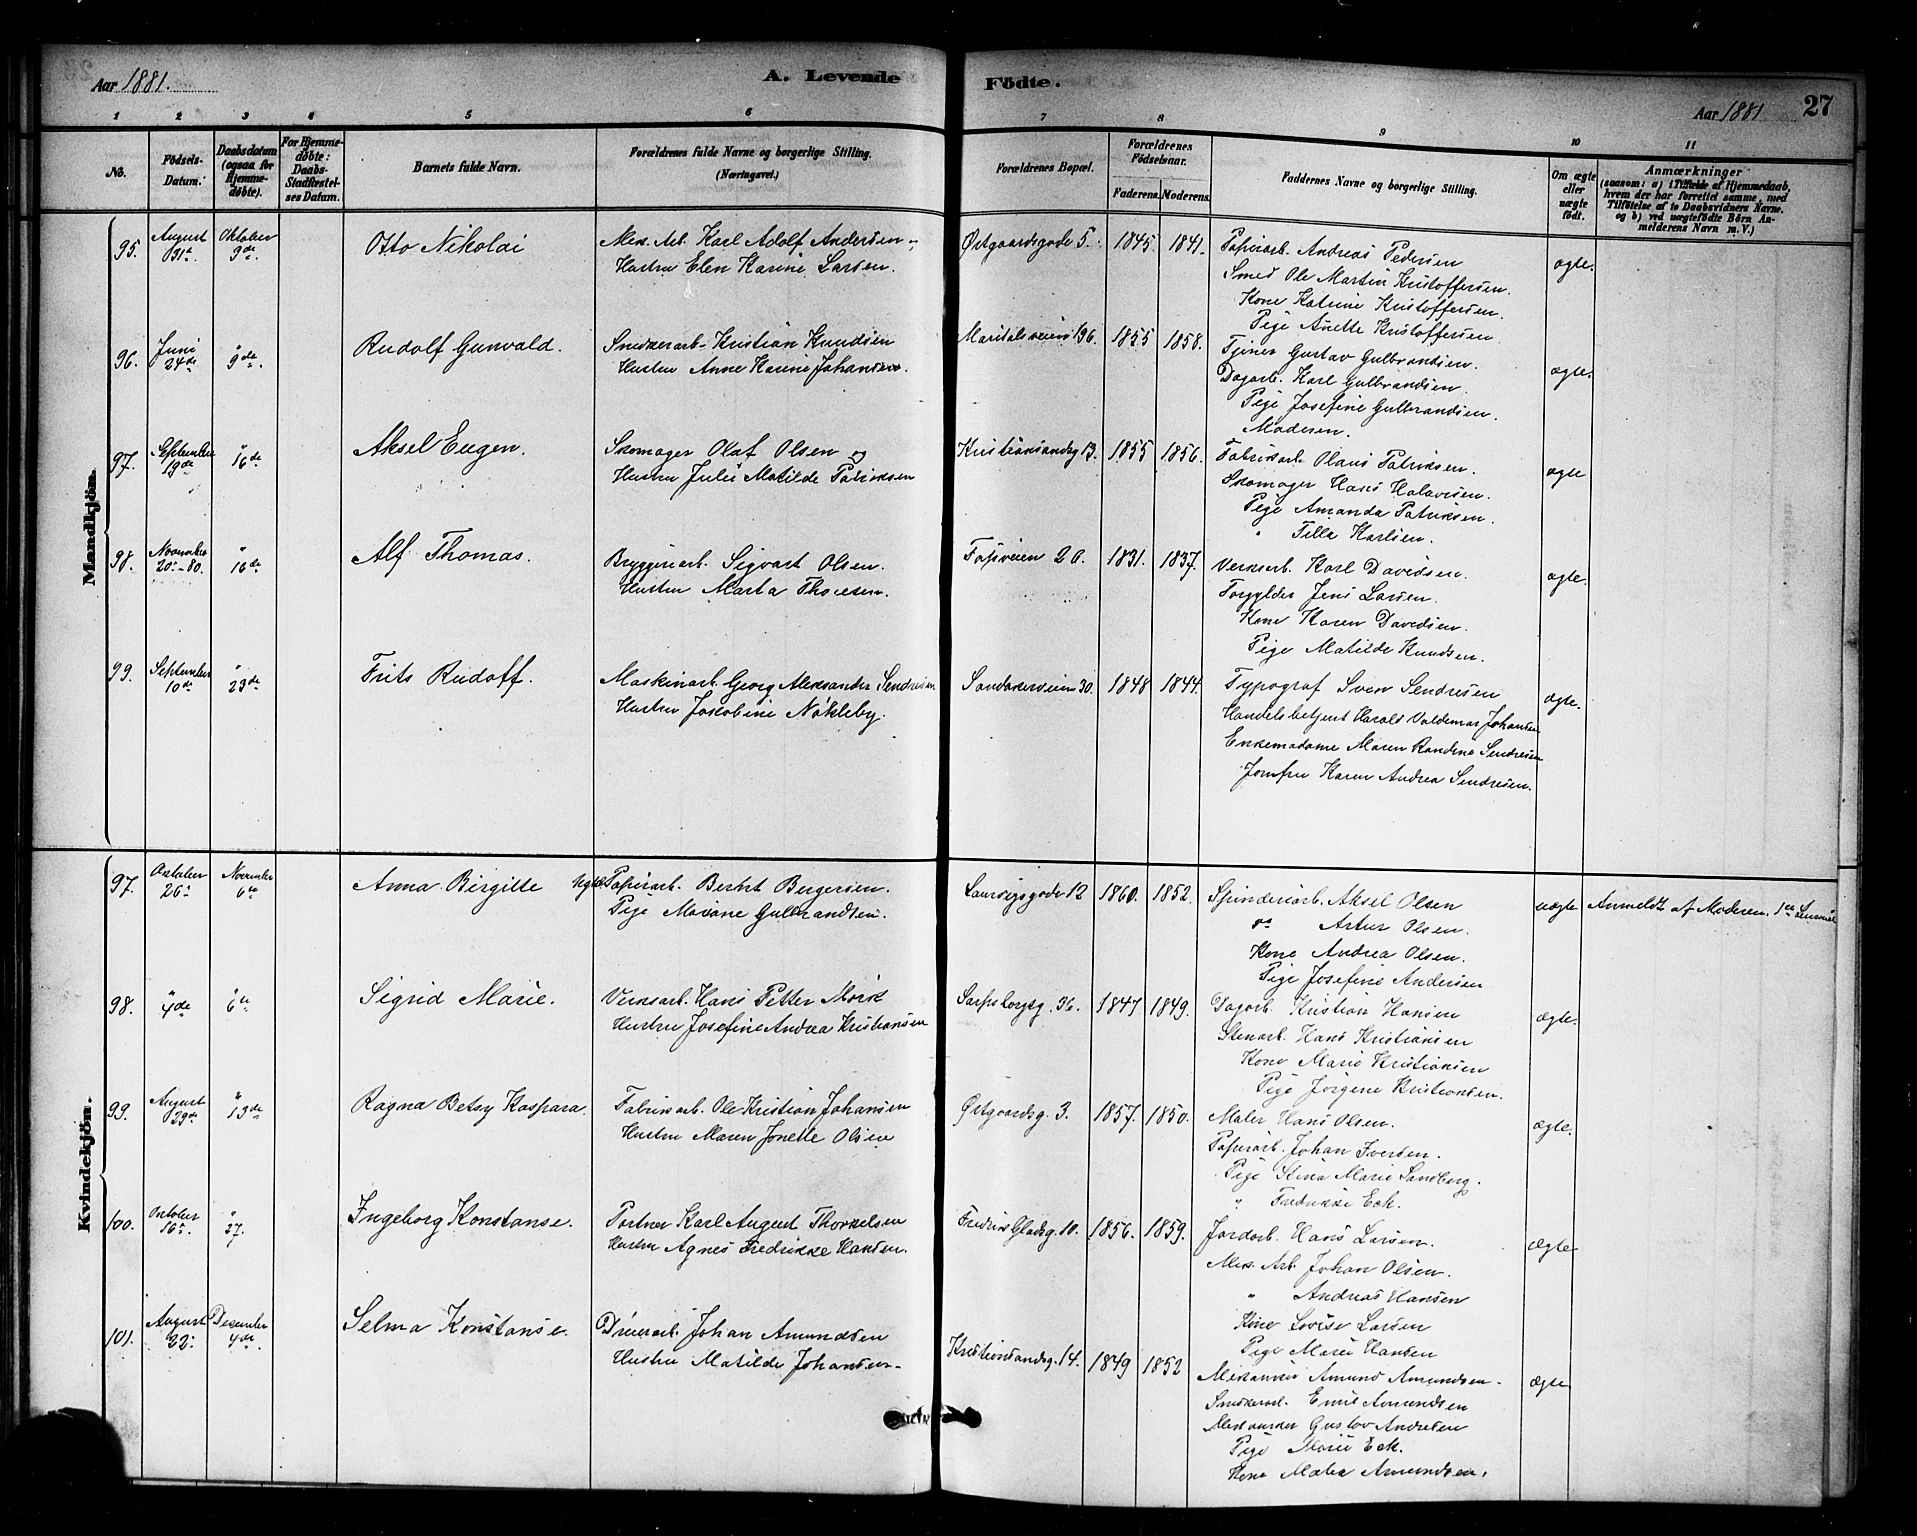 Aar 1881.
A. Levende
Födte.
Aar 1881
27
1 2 3 4 5 6 7 8 9 10 11
No.
Födsels-
Datum.
Daabsdatum
(ogsaa for
Hjemme-
döbte).
For Hjemme-
döbte:
Daabs-
Stadfæstel-
ses Datum.
Barnets fulde Navn.
Forældrenes fulde Navne og borgerlige Stilling.
(Næringsvei.)
Forældrenes Bopæl.
Forældrenes
Födselsaar.
Faderens. Moderens.
Faddernes Navne og borgerlige Stilling.
Om ægte
eller
uægte
födt.
Anmærkninger
(saasom: a) i Tilfælde af Hjemmedaab,
hvem der har forrettet samme, med
Tilföielse af to Daabsvidners Navne.
og b) ved uægtefödte Börn An-
melderens Navn m. V.)
Mandkjön.
95. August 31te Oktober 9de Otto Nikolai
Mek. Arb. Karl Adolf Andersen
Hustru Elen Karine Larsen.
Østgaardsgade 5. 1845. 1841.
Papirarb. Andreas Pedersen
Smed Ole Martin Kristoffersen.
Kone Katrine Kristoffersen.
Pige Anette Kristoffersen.
ægte.
96. Juni 24de " 9de Rudolf Gunvald.
Snedkerarb. Kristian Knudsen
Hustru Anne Karine Johansen.
Maridalsveien 196. 1855 1858.
Tjener Gustav Gulbrandsen.
Dagarb. Karl Gulbrandsen.
Pige Josefine Gulbrandsen.
Moderen.
ægte.
97. September 19de " 16de Aksel Eugen.
Skomager Olaf Olsen og
Hustru Julie Matilde Patriksen
Kristiansandsg 13. 1855 1856.
Fabrikarb. Olaus Patriksen.
Skomager Hans Halvorsen.
Pige Amanda Patriksen.
" Tilla Karlsen.
ægte
98. November 20-80. " 16de Alf Thomas.
Bryggeriarb. Sigvart Olsen.
Hustru Marta Thoresen.
Fossveien 20. 1831. 1837.
Verksarb. Karl Davidsen.
Forgylder Jens Larsen.
Kone Karen Davidsen.
Pige Matilde Knudsen.
ægte.
99. September 10de " 23de Frits Rudolf.
Maskinarb. Georg Aleksander Sendresen
Hustru Jakobine Nøkleby.
Sandakerveien 30. 1848 1844.
Typograf Sven Sendresen
Handelsbetjent Harald Valdemar Johansen
Enkemadame Maren Randine Sendresen
Jomfru Karen Andrea Sendresen.
ægte.
Kvindekjön.
97. Oktober 26 November 6te Anna Birgitte
Papirarb. Bernt Bergersen.
Pige Mariane Gulbrandsen.
Laurvigsgade 12 1860. 1852.
Spinderiarb. Aksel Olsen
do Artur Olsen.
Kone Andrea Olsen.
Pige Josefine Andersen
uægte Anmeldt af Moderen. 1ste
98. " 4de " 6te Sigrid Marie.
Verksarb. Hans Petter Mørk
Hustru Josefine Andrea Kristiansen
Sarpsborgsg. 36. 1847 1849.
Dagarb. Kristian Hansen
Stenarb. Hans Kristiansen
Kone Marie Kristiansen
Pige Jørgine Kristiansen.
ægte.
99. August 29de " 13de Ragna Betsy Kaspara.
Fabrikarb. Ole Kristian Johansen
Hustru Maren Jonette Olsen
Østgaardsg. 3. 1857. 1850.
Maler Hans Olsen.
Papirarb. Johan Iversen.
Pige Stina Marie Sandberg.
" Fredrikke Eck.
ægte.
100. Oktober 16 " 27. Ingeborg Konstanse.
Portner Karl August Thorkelsen
Hustru Agnes Fredrikke Hansen.
Fredriks Gladsg. 10. 1856. 1859.
Jordarb. Hans Larsen.
Mek. Arb. Johan Olsen.
" Andreas Hansen
Kone Lovise Larsen
Pige Marie Hansen
ægte
101. August 22 December 4de Selma Konstanse.
Johan Amundsen
Hustru Matilde Johansen.
Kristiansandsg. 14. 1849 1852
Mekaniker Amund Amundsen.
Snedkerarb. Emil Amundsen
Mekaniker Gustav Andresen
Pige Marie Eck.
Kone Amundsen.
ægte